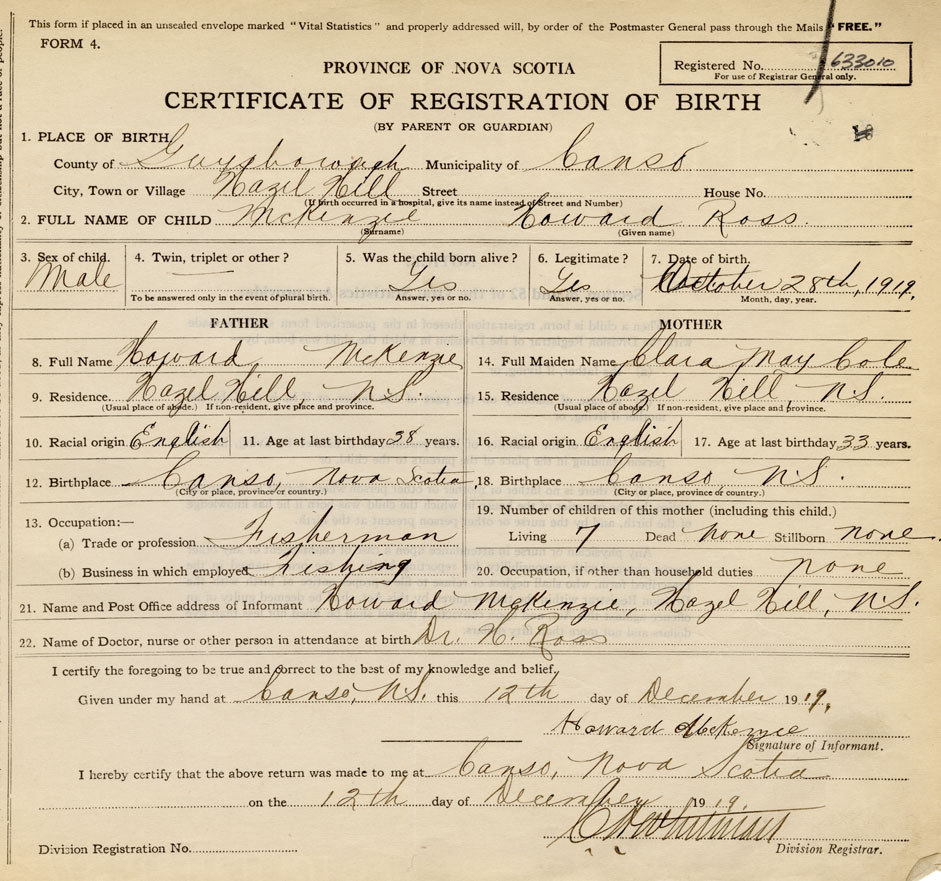 This form if placed in an unsealed envelope marked "Vital Statistics" and properly addressed will, by order of the Postmaster General pass through the Mails "FREE."
FORM 4.
Registered No. 633010
For use of Registrar General only.
PROVINCE OF NOVA SCOTIA
CERTIFICATE OF REGISTRATION OF BIRTH
(BY PARENT OR GUARDIAN)
1. PLACE OF BIRTH
County of Guysborough Municipality of Canso
City, Town or Village Hazel Hill Street House No.
(If birth occurred in a hospital, give its name instead of Street and Number)
2. FULL NAME OF CHILD McKenzie Howard Ross.
(Surname) (Given name)
3. Sex of child. 4. Twin, triplet or other? 5. Was the child born alive? 6. Legitimate? 7. Date of birth.
Male Yes Yes October 28th, 1919.
To be answered only in the event of plural birth. Answer, yes or no. Answer, yes or no. Month, day, year.
FATHER MOTHER
8. Full Name Howard McKenzie 14. Full Maiden Name Clara May Cole
9. Residence. Hazel Hill, N.S. 15. Residence Hazel Hill, N.S.
(Usual place of abode.) If non-resident, give place and province. (Usual place of abode.) If non-resident, give place and province.
10. Racial origin English 11. Age at last birthday 38 years. 16. Racial origin English 17. Age at last birthday 33 years.
12. Birthplace Canso, Nova Scotia, 18. Birthplace Canso, N.S.
(City or place, province or country.) (City or place, province or country.)
13. Occupation:— 19. Number of children of this mother (including this child.)
(a) Trade or profession Fisherman Living 7 Dead None Stillborn none.
(b) Business in which employed Fishing 20. Occupation, if other than household duties none
21. Name and Post Office address of Informant Howard McKenzie, Hazel Hill, N.S.
22. Name of Doctor, nurse or other person in attendance at birth Dr. H. Ross
I certify the foregoing to be true and correct to the best of my knowledge and belief.
Given under my hand at Canso, N.S. this 12th day of December 1919.
Howard McKenzie
Signature of Informant.
I hereby certify that the above return was made to me at Canso, Nova Scotia
on the 12th day of December 1919.
Division Registration No. Division Registrar.